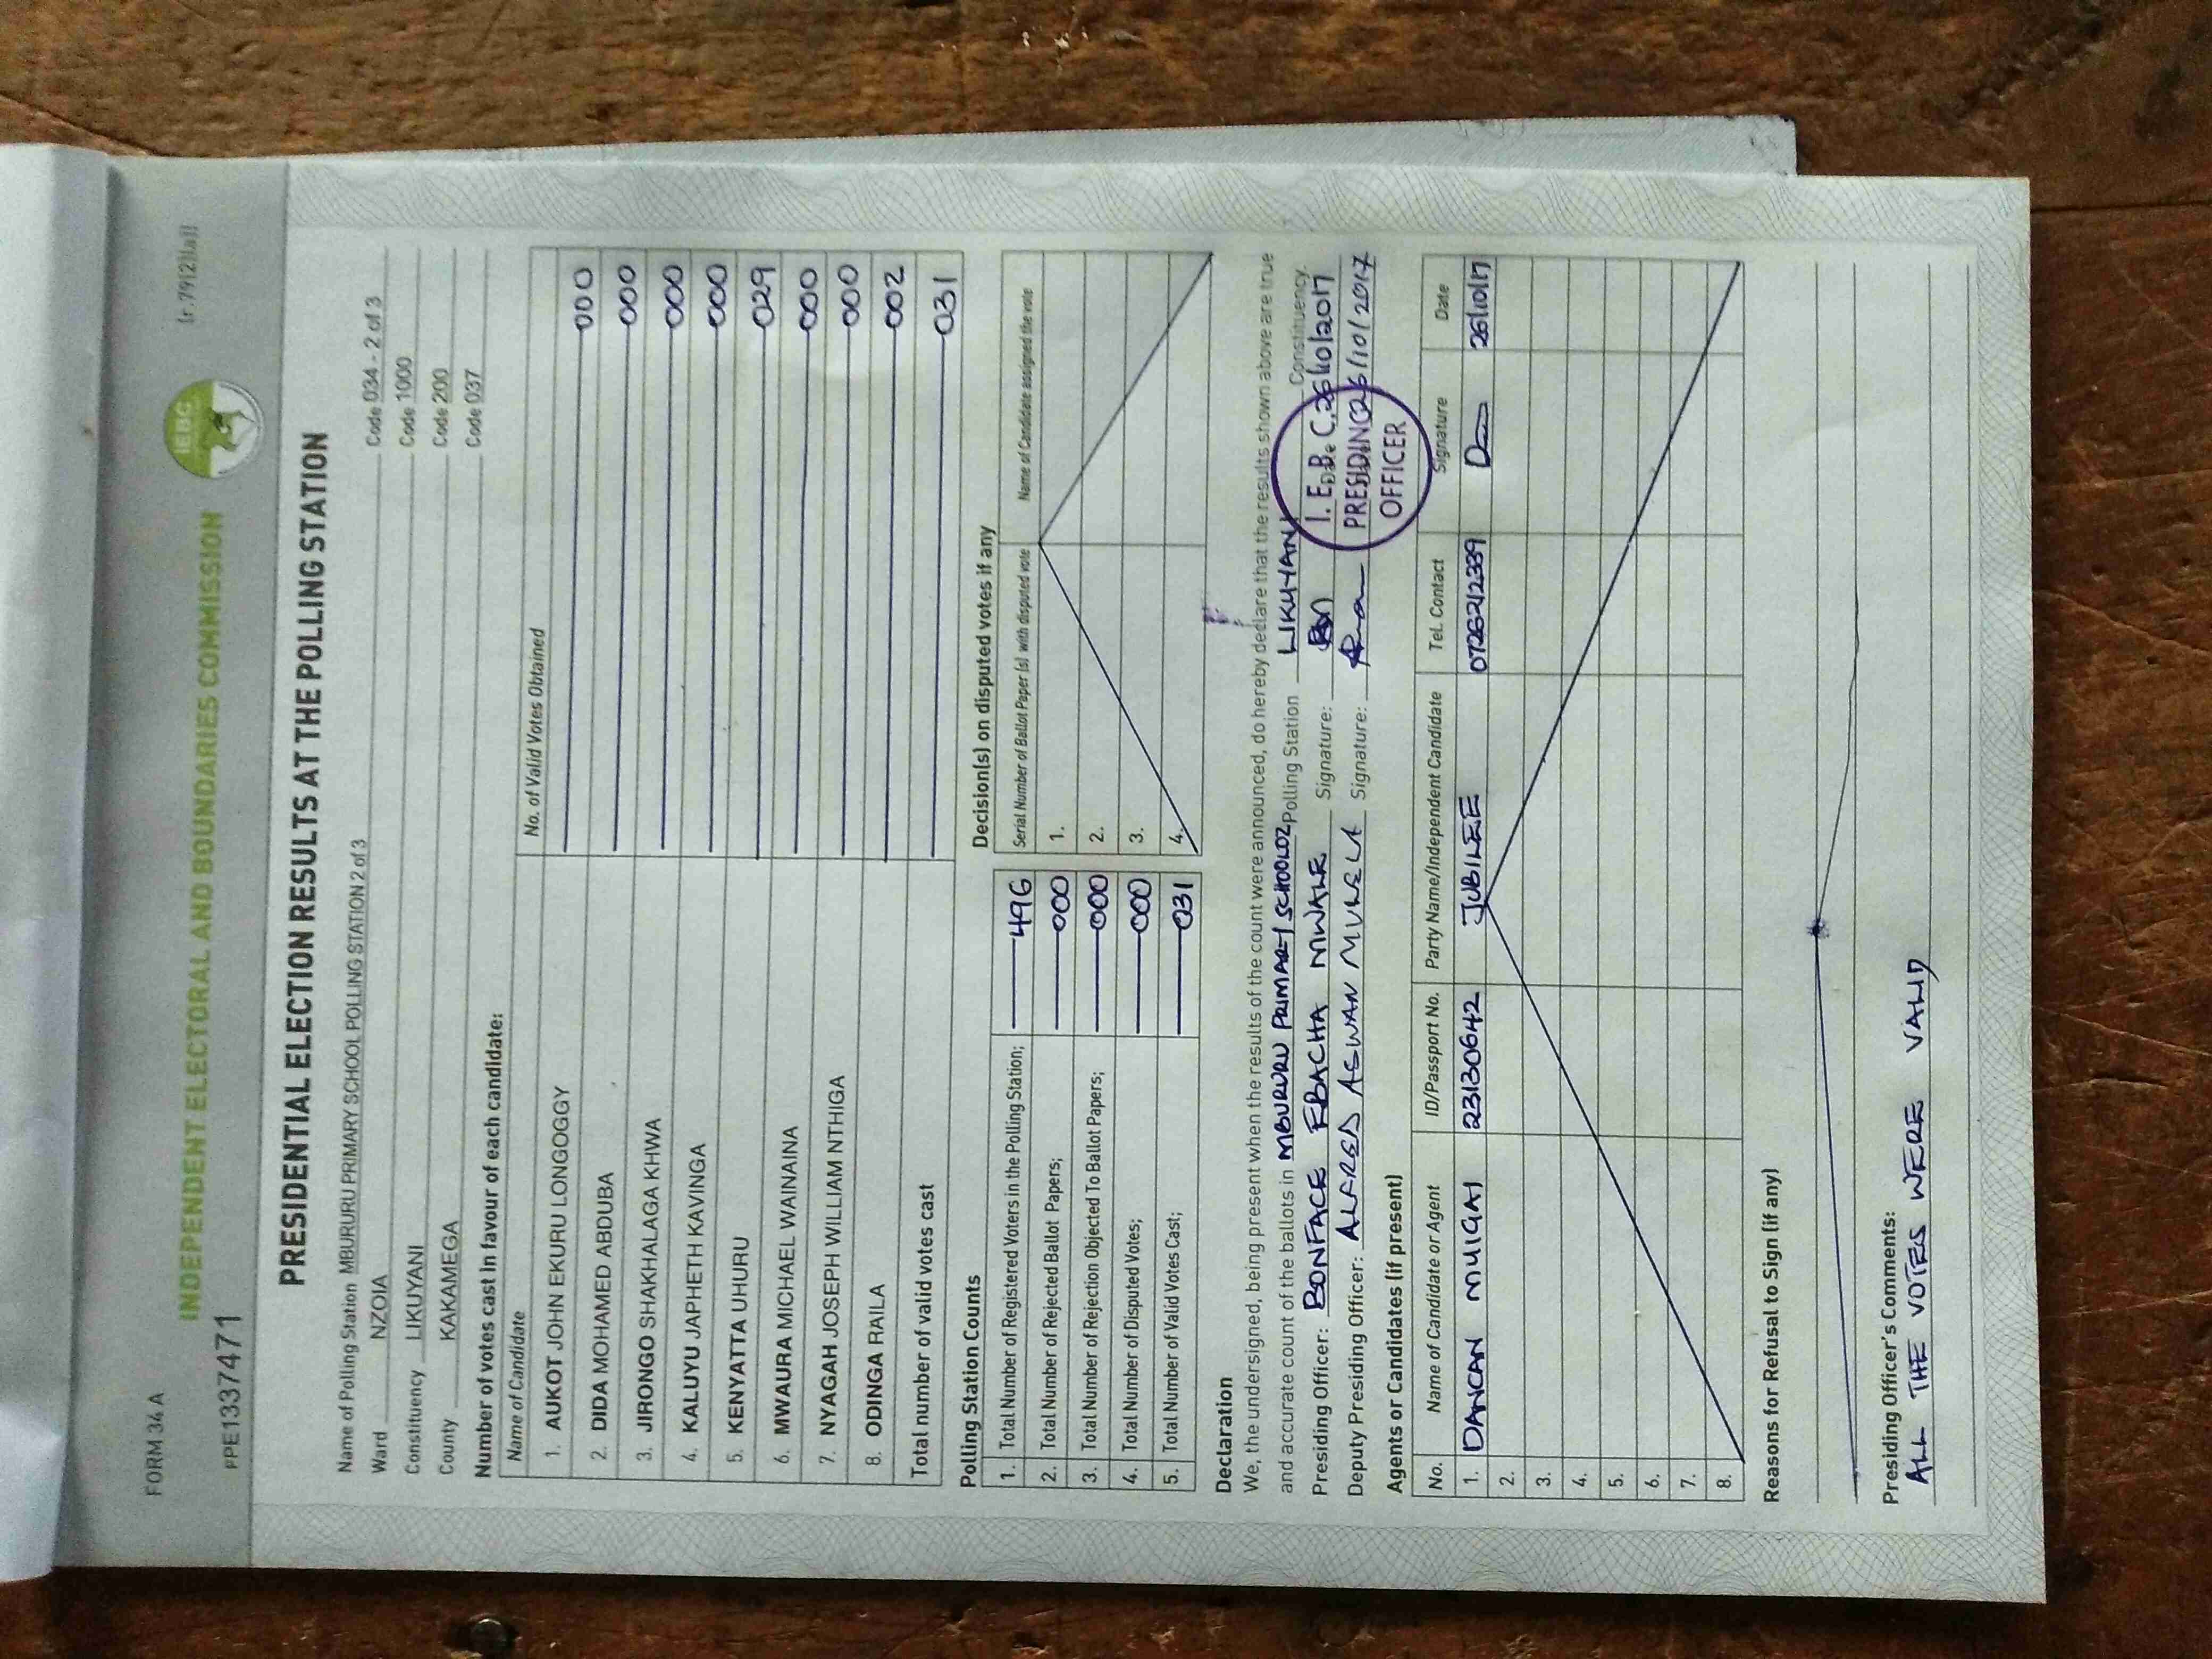 FORM 34 A (r.79(2)(a))
IEBC
INDEPENDENT ELECTORAL AND BOUNDARIES COMMISSION
PPE1337471
PRESIDENTIAL ELECTION RESULTS AT THE POLLING STATION
Name of Polling Station MBURURU PRIMARY SCHOOL POLLING STATION 2 of 3 Code 034 - 2 of 3
Ward NZOIA Code 1000
Constituency LIKUYANI Code 200
County KAKAMEGA Code 037
Number of votes cast in favour of each candidate:
Name of Candidate No. of Valid Votes Obtained
1. AUKOT JOHN EKURU LONGOGGY 000
2. DIDA MOHAMED ABDUBA 000
3. JIRONGO SHAKHALAGA KHWA 000
4. KALUYU JAPHETH KAVINGA 000
5. KENYATTA UHURU 029
6. MWAURA MICHAEL WAINAINA 000
7. NYAGAH JOSEPH WILLIAM NTHIGA 000
8. ODINGA RAILA 002
Total number of valid votes cast 031
Polling Station Counts
1. Total Number of Registered Voters in the Polling Station; 496
2. Total Number of Rejected Ballot Papers; 000
3. Total Number of Rejection Objected To Ballot Papers; 000
4. Total Number of Disputed Votes; 000
5. Total Number of Valid Votes Cast; 031
Decision(s) on disputed votes if any
Serial Number of Ballot Paper (s) with disputed vote Name of Candidate assigned the vote
1.
2.
3.
4.
Declaration
We, the undersigned, being present when the results of the count were announced, do hereby declare that the results shown above are true
and accurate count of the ballots in MBURURU PRIMARY SCHOOL 02 Polling Station LIKUYANI Constituency.
Presiding Officer: BONFACE EBACHA MWALE Signature: 26/10/2017
Deputy Presiding Officer: ALFRED ASWAN MUKELA Signature: 26/10/2017
I. E. B. C.
PRESIDING
OFFICER
Agents or Candidates (if present)
No. Name of Candidate or Agent ID/Passport No. Party Name/Independent Candidate Tel. Contact Signature Date
1. DANCAN MUIGAI 23130642 JUBILEE 0726212339 26/10/17
2.
3.
4.
5.
6.
7.
8.
Reasons for Refusal to Sign (if any)
Presiding Officer's Comments:
ALL THE VOTES WERE VALID